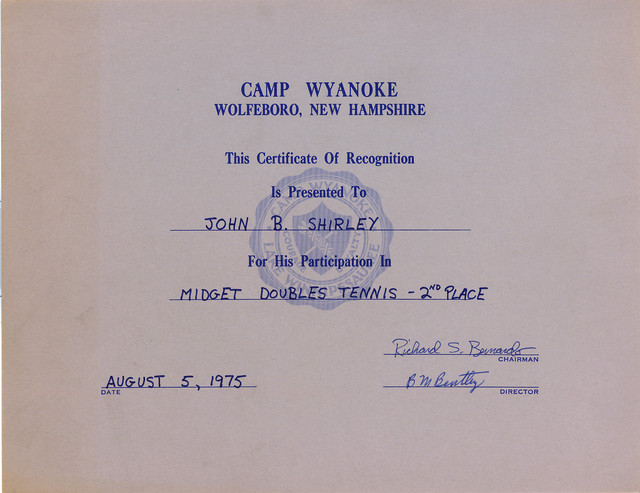 CAMP WYANOKE
WOLFEBORO, NEW HAMPSHIRE
This Certificate Of Recognition
Is Presented To
CAMP WYANOKE
JOHN B. SHIRLEY
COURAGE LOYALTY
For His Participation In
LAKE WINNIPESAUKEE
MIDGET DOUBLES TENNIS - 2ND PLACE
Richard S. Bernardo
CHAIRMAN
AUGUST 5, 1975
B M Bentley
DATE
DIRECTOR